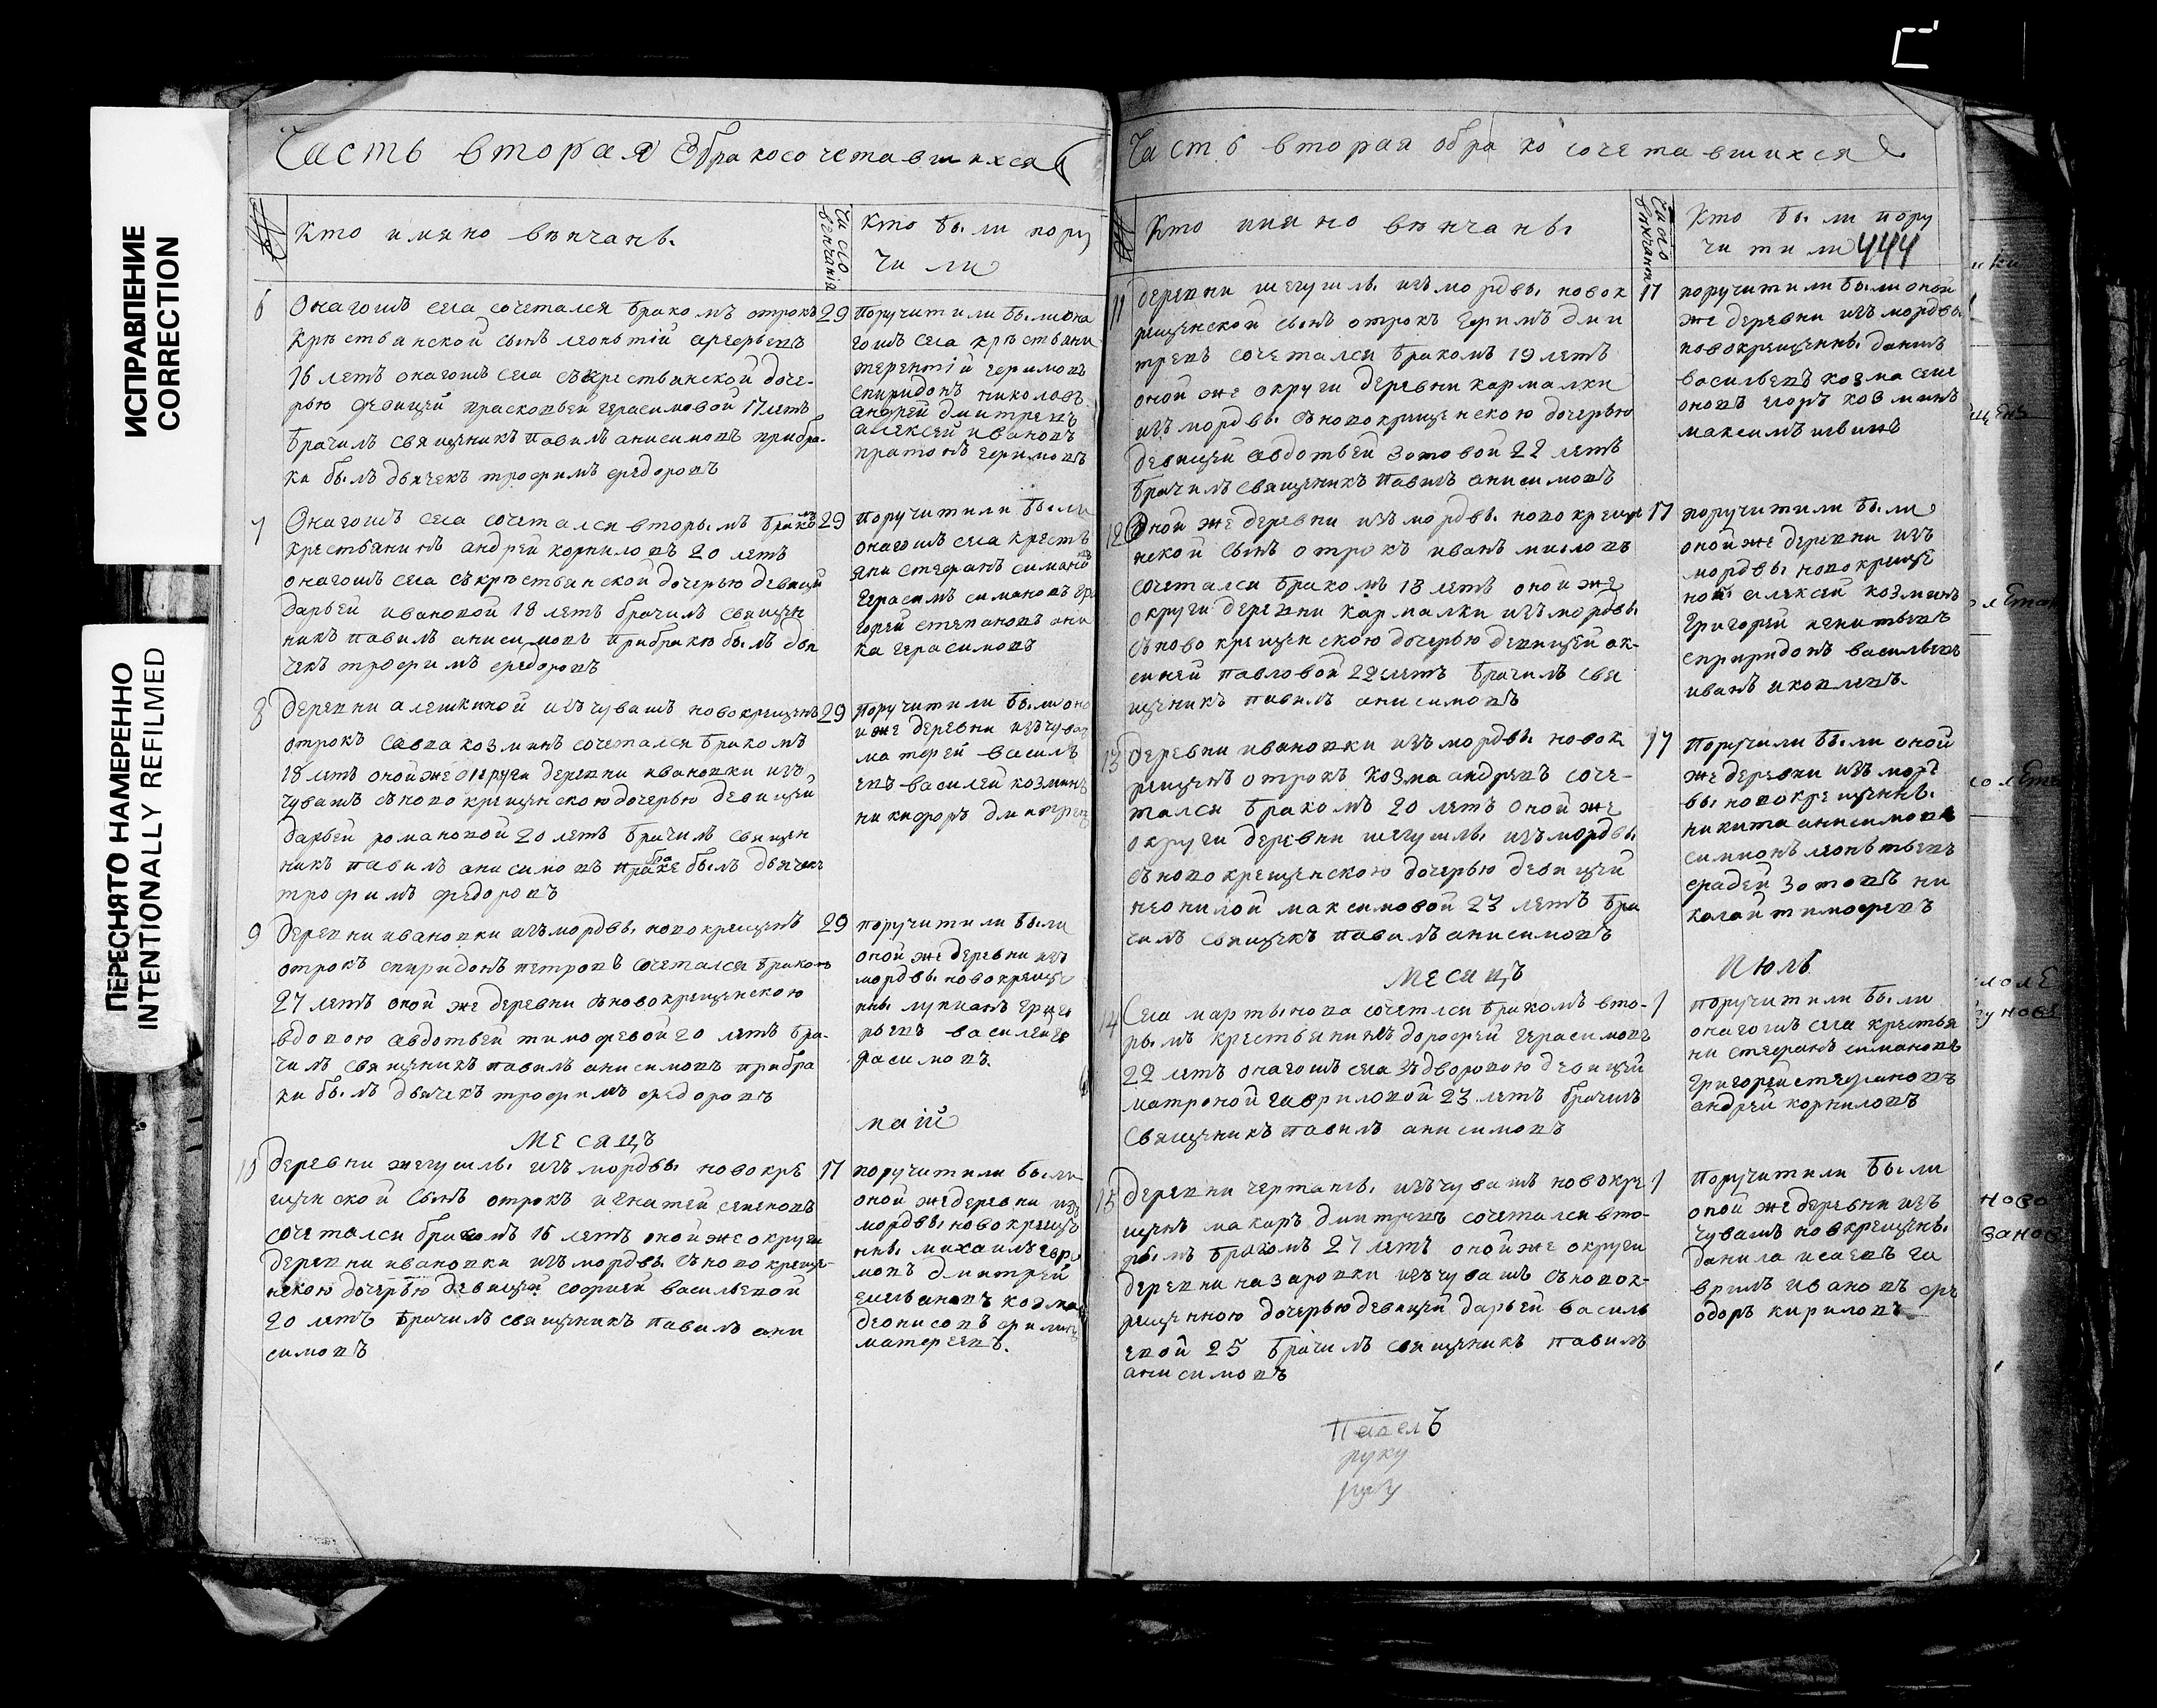 ИСПРАВЛЕНИЕ
CORRECTION
ПЕРЕСНЯТО НАМЕРЕННО
INTENTIONALLY REFILMED
Часть вторая Обракосочетавшихся
Кто имяно венчаны
Число венчания
Кто были пору
чили
6
Онагошъ села сочетался бракомъ отрокъ
крествянской сынъ леонътiй
16 летъ онагошъ села съкрествянской доче-
рью девицей прасковьей герасимовой 17 летъ
брачилъ священникъ павилъ анисимовъ прибра-
ка былъ дьячекъ трофимъ федоровъ
29
поручитили были она
гошъ села крествяни
терентiй ефимовъ
спиридонъ николовъ
андрей дмитревъ
алексей ивановъ
платонъ ефимовъ
7
Онагошъ села сочетался вторымъ бракомъ
крестьянинъ андрей корниловъ 20 летъ
онагошъ села съкрествянской дочерью девицы
дарьей ивановой 18 летъ брачилъ священ
никъ павилъ анисимовъ прибраке былъ дья
чекъ трофимъ федоровъ
29
поручитили были
онагошъ села кресть
яни стефанъ симано
герасимъ симановъ гри
горей степановъ они
ка герасимовъ
8
деревни алешкиной изъчувашъ новокрещенъ
отрокъ савва козминъ сочетался бракомъ
18 летъ оной же округи деревни ивановки изъ
чувашъ съново крещенскою дочерью девицей
дарьей романовой 20 летъ брачилъ священ
никъ павилъ анисимовъ прибраке былъ дьячекъ
трофимъ федоровъ
29
поручитили были оно
и же деревни изъчуваш
матфей василь
евъ василей козминъ
никифоръ дмитрев
9
деревни ивановки изъмордвы новокрещенъ
отрокъ спиридонъ петровъ сочетался браком
27 летъ оной же деревни съновокрещенскою
вдовою авдотьей тимофевой 20 летъ бра-
чилъ священникъ павилъ анисимовъ прибра
ки былъ дьячекъ трофимъ федоровъ
29
поручитили были
оной же деревни изъ
мордвы новокреще
ны лукианъ
василей ге
расимовъ.
Месяцъ
маiй
10
деревни жегушлы изъ мордвы новокре
щенской сынъ отрокъ игнатей семеновъ
сочетался бракомъ 16 летъ оной же округи
деревни ивановки изъ мордвы съновокреще-
нскою дочерью девицей софией васильевой
20 летъ брачилъ священникъ павилъ ани
симовъ
17
поручитили были
оной же деревни изъ
мордвы новокреще
ны михаилъ ефи
мовъ дмитрей
емельяновъ козма
деонисовъ филипъ
матфеевъ.
Часть вторая обракосочетавшихся
Кто имяно венчаны
Число венчания
Кто были пору
читили 444
11
деревни шегушлы изъмордвы новок
рещенской сынъ отрокъ ефимъ дми
тревъ сочетался бракомъ 19 летъ
оной же округи деревни кармалки
изъ мордвы съновокрещенскою дочерью
девицей авдотьей зотовой 22 летъ
брачилъ священникъ павилъ анисимовъ
17
поручитили были оной
же деревни изъ мордвы
новокрещенны данилъ
васильевъ козма семе
оновъ егоръ козминъ
максимъ
12
Оной же деревни изъ мордвы новокреще
нской сынъ отрокъ иванъ
сочетался бракомъ 18 летъ оной же
округи деревни кармалки изъмордвы
съновокрещенскою дочерью девицей ок-
синей павловой 22 летъ брачилъ свя
щеникъ павилъ анисимовъ
17
поручитили были
оной же деревни изъ
мордвы новокреще
ной алексей козминъ
григорей
спиридонъ васильевъ
иванъ яковлевъ.
13
деревни ивановки изъ мордвы новок
рещенъ отрокъ козма андревъ соче-
тался бракомъ 20 летъ оной же
округи деревни шегушлы изъмордвы
съновокрещенскою дочерью девицей
неонилой максимовой 23 летъ бра
чилъ свящекъ павилъ анисимовъ
17
Поручили были оной
же деревни изъ морд
вы новокрещенны
никита анисимовъ
симионъ леонътьевъ
фадей зотовъ ни
колай тимофевъ
Месяцъ
Июль
14
Села мартынова сочетлся бракомъ вто-
рымъ крестьянинъ дорофей герасимовъ
22 летъ онагошъ села здворовою девицей
матроной гавриловой 23 летъ брачилъ
священникъ павилъ анисимовъ
1
поручитили были
онагошъ села крестья
ни стефанъ симановъ
григорей стефановъ
андрей корниловъ
15
деревни чертаны изъчувашъ новокре
щенъ макаръ дмитревъ сочетался вто-
рымъ бракомъ 27 летъ оной же округи
деревни назаровки изъчувашъ съновок-
рещенною дочерью девицей дарьей василь
евой 25 брачилъ священикъ павилъ
анисимовъ
1
Поручитили были
оной же деревни изъ
чувашъ новкрещены
данила исаевъ га
врилъ ивановъ фе
одоръ кириловъ
Павелъ
руку